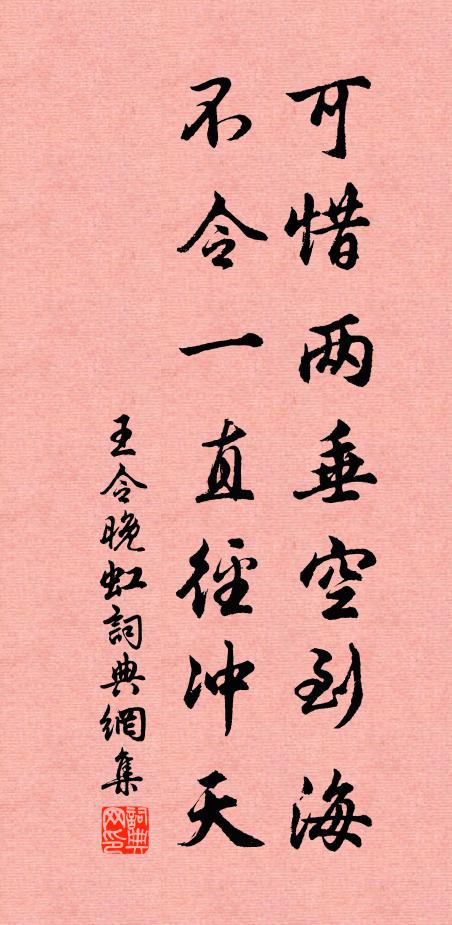 可惜两垂空到海
不令一直径冲天
王令晚虹詞典網集
詞典网印